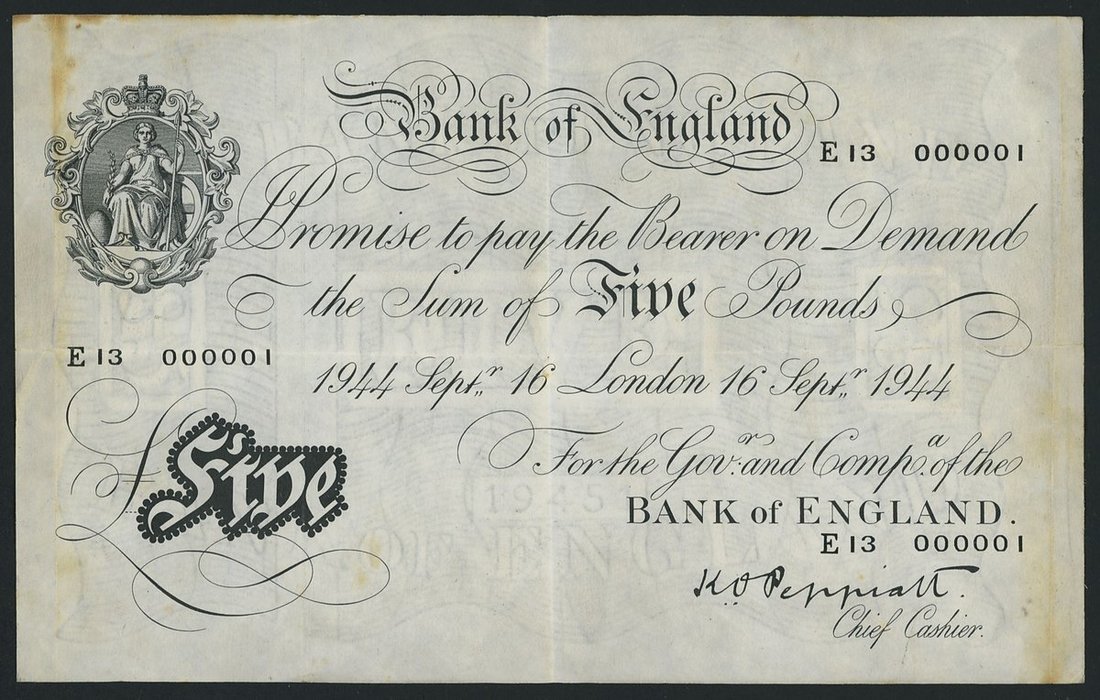 Bank of England
E 13 000001
I Promise to pay the Bearer on Demand
the Sum of Five Pounds
E 13 000001
1944 Septr. 16 London 16 Septr. 1944
£Five
For the Govr. and Compa. of the
BANK of ENGLAND.
E 13 000001
K.O. Peppiatt.
Chief Cashier.
1945
OF ENG